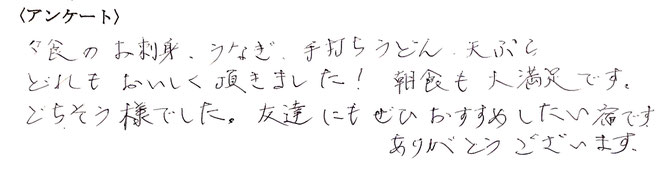 〈アンケート〉
夕食のお刺身、うなぎ、手打ちうどん、天ぷら
どれもおいしく頂きました！ 朝食も大満足です。
ごちそう様でした。友達にもぜひおすすめしたい宿です
ありがとうございます。